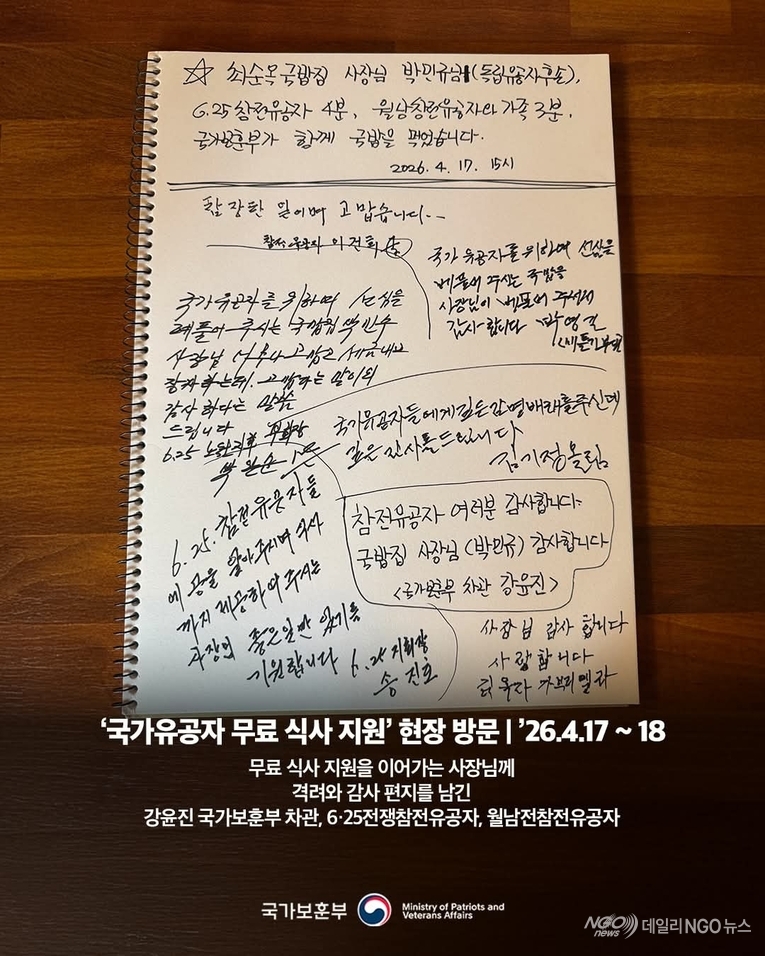 ☆ 최순옥국밥집 사장님 박민규님(독립유공자후손),
6.25참전유공자 4분, 월남참전유공자와 가족 3분,
국가보훈부가 함께 국밥을 먹었습니다.
2026. 4. 17. 15시
고맙습니다..
참전유공자 이건희
국가유공자를 위하여 선심을
베풀어 주시는 국밥을
사장님이 베풀어 주셔서
감사합니다 박영걸
국가유공자를 위하여 선심을
베풀어 주시는 국밥집
사장님 고맙고
고맙다는 말이외
감사하다는 말씀
드립니다
6.25
국가유공자들에게 깊은
깊은 감사를드립니다
김기정올림
6.25. 참전유공자들
에 공을 알아주시며 식사
까지 제공하여 주시는
사장님 좋은일만 있기를
기원합니다 6.25 지회장
송진호
참전유공자 여러분 감사합니다.
국밥집 사장님(박민규) 감사합니다
<국가보훈부 차관 강윤진>
사장님 감사합니다
사랑합니다
가브리엘라
‘국가유공자 무료 식사 지원’ 현장 방문 | ’26.4.17 ~ 18
무료 식사 지원을 이어가는 사장님께
격려와 감사 편지를 남긴
강윤진 국가보훈부 차관, 6·25전쟁참전유공자, 월남전참전유공자
국가보훈부
Ministry of Patriots and
Veterans Affairs
NGO news 데일리NGO뉴스